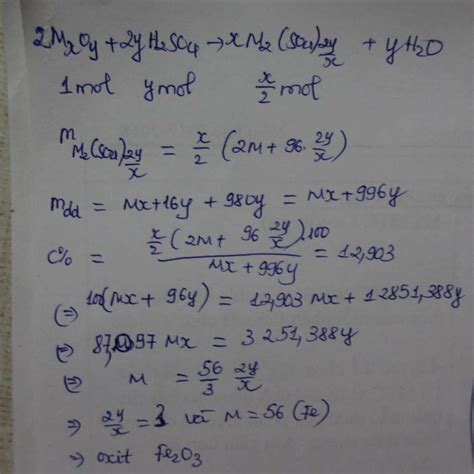 2MxOy + 2yH2SO4 → xM2(SO4)2y/x + yH2O
1mol ymol x/2 mol
mM2(SO4)2y/x = x/2 (2M + 96. 2y/x)
mdd = Mx+16y + 980y = Mx+996y
C% = x/2 (2M + 96 2y/x).100 / Mx+996y = 12,903
(=) 100(Mx + 96y) = 12,903 Mx + 12851,388y
(=) 87,097 Mx = 3251,388y
(=) M = 56/3 2y/x
=> 2y/x = 3 và M = 56 (Fe)
=> oxit Fe2O3